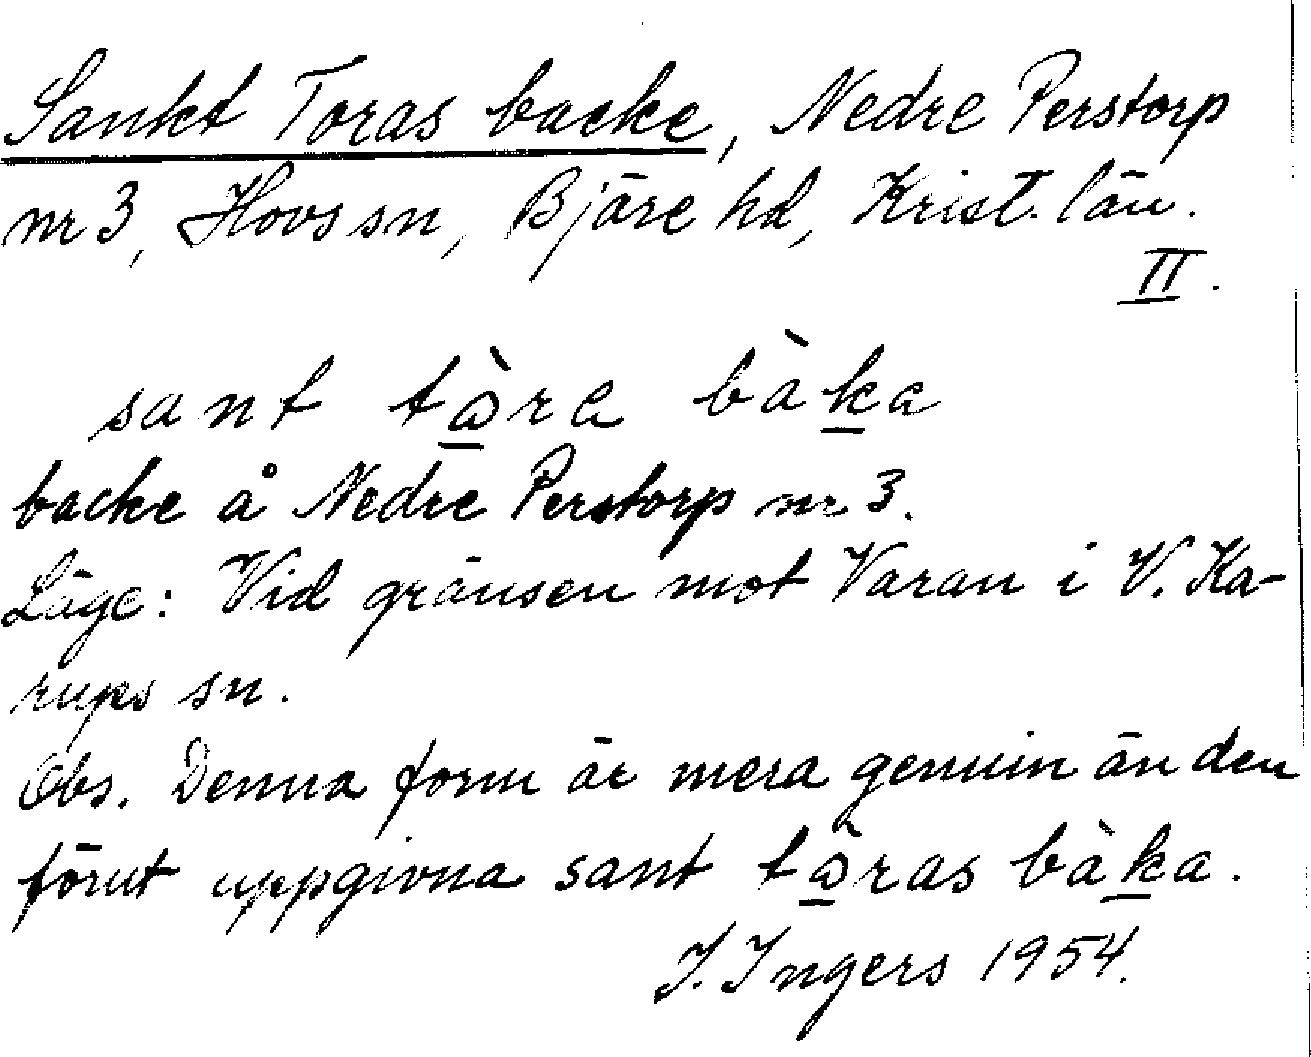 Sankt Toras backe, Nedre Perstorp
nr 3, Hovs sn, Bjäre hd, Krist. län.
II.
sant tὼ̲ra bàk̲a
backe å Nedre Perstorp nr 3.
Läge: Vid gränsen mot Varan i V. Ka-
rups sn.
Obs. Denna form är mera genuin än den
förut uppgivna sant tὼ̲ras bàk̲a.
I. Ingers 1954.